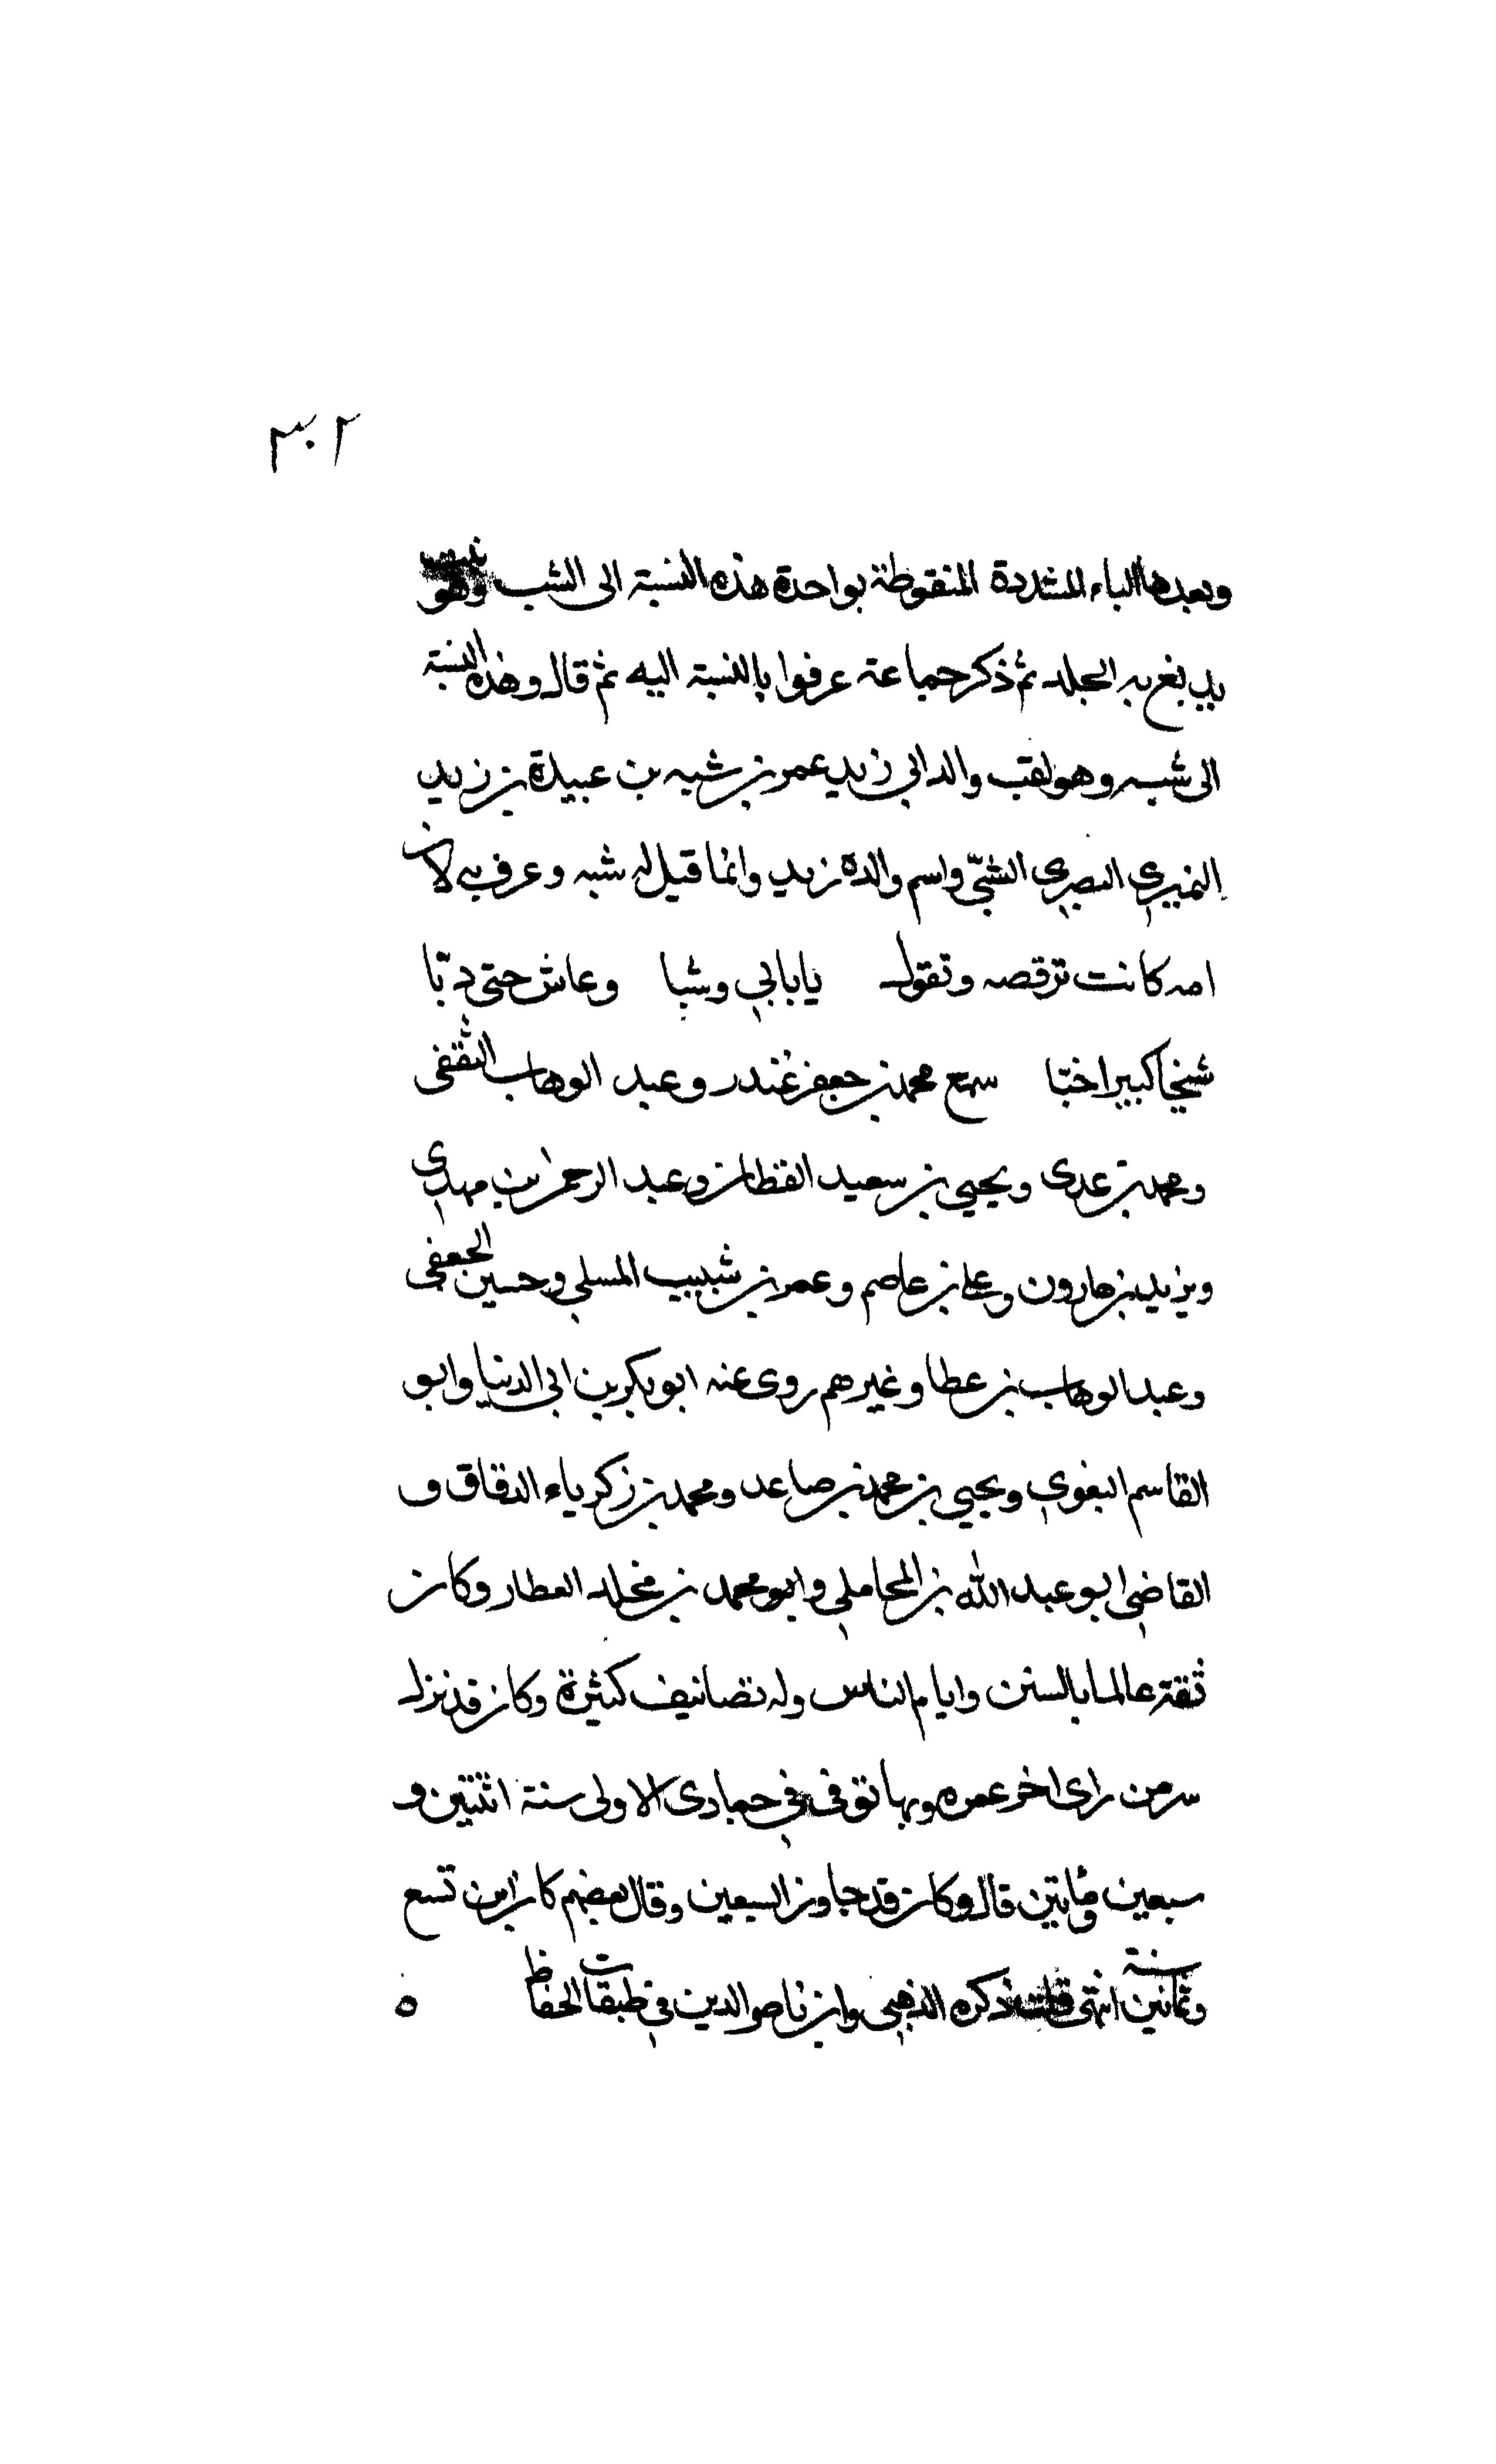 ٣٠٢
وبعدها الباء المشددة المنقوطة بواحدة هذه النسبة الى الشب وهو
يدبغ به الجلد ثم ذكر جماعة عرفوا بالنسبة اليه ثم قال وهذه النسبة
الى شبه وهو لقب والد ابي زيد عمر بن شبه بن عبيدة بن زيد
النميري البصري الشبّي واسم والده زيد وانما قيل له شبه وعرف به لان
امه كانت ترقصه وتقول يابابي وشبا وعاش حتى دبّا
شيخا كبيرا خبّا سمع محمد بن جعفر غندر وعبد الوهاب الثقفي
ومحمد بن عدى ويحيي بن سعيد القطان وعبد الرحمن بن مهدي
ويزيد بن هارون وعلي بن عاصم وعمر بن شبيب المسلي وحسين الجعفي
وعبد الوهاب بن عطا وغيرهم روى عنه ابو بكر بن ابي الدنيا وابو
القاسم البغوي ويحيي بن محمد بن صاعد ومحمد بن زكرياء الدقاق و
القاضي ابو عبد الله بن المحاملي وابو محمد بن مخلد العطار وكان
ثقة عالما بالسنن وايام الناس وله تصانيف كثيرة وكان قد نزل
سر من راى اخر عمره وبها توفى في جمادى الاولى سنة اثنتين و
سبعين ومايتين قال وكان قد جاوز السبعين وقال بعضهم كان ابن تسع
وثمانين سنة انتهى قلت ذكره الذهبي وابن ناصر الدين في طبقات الحفاظ ٥